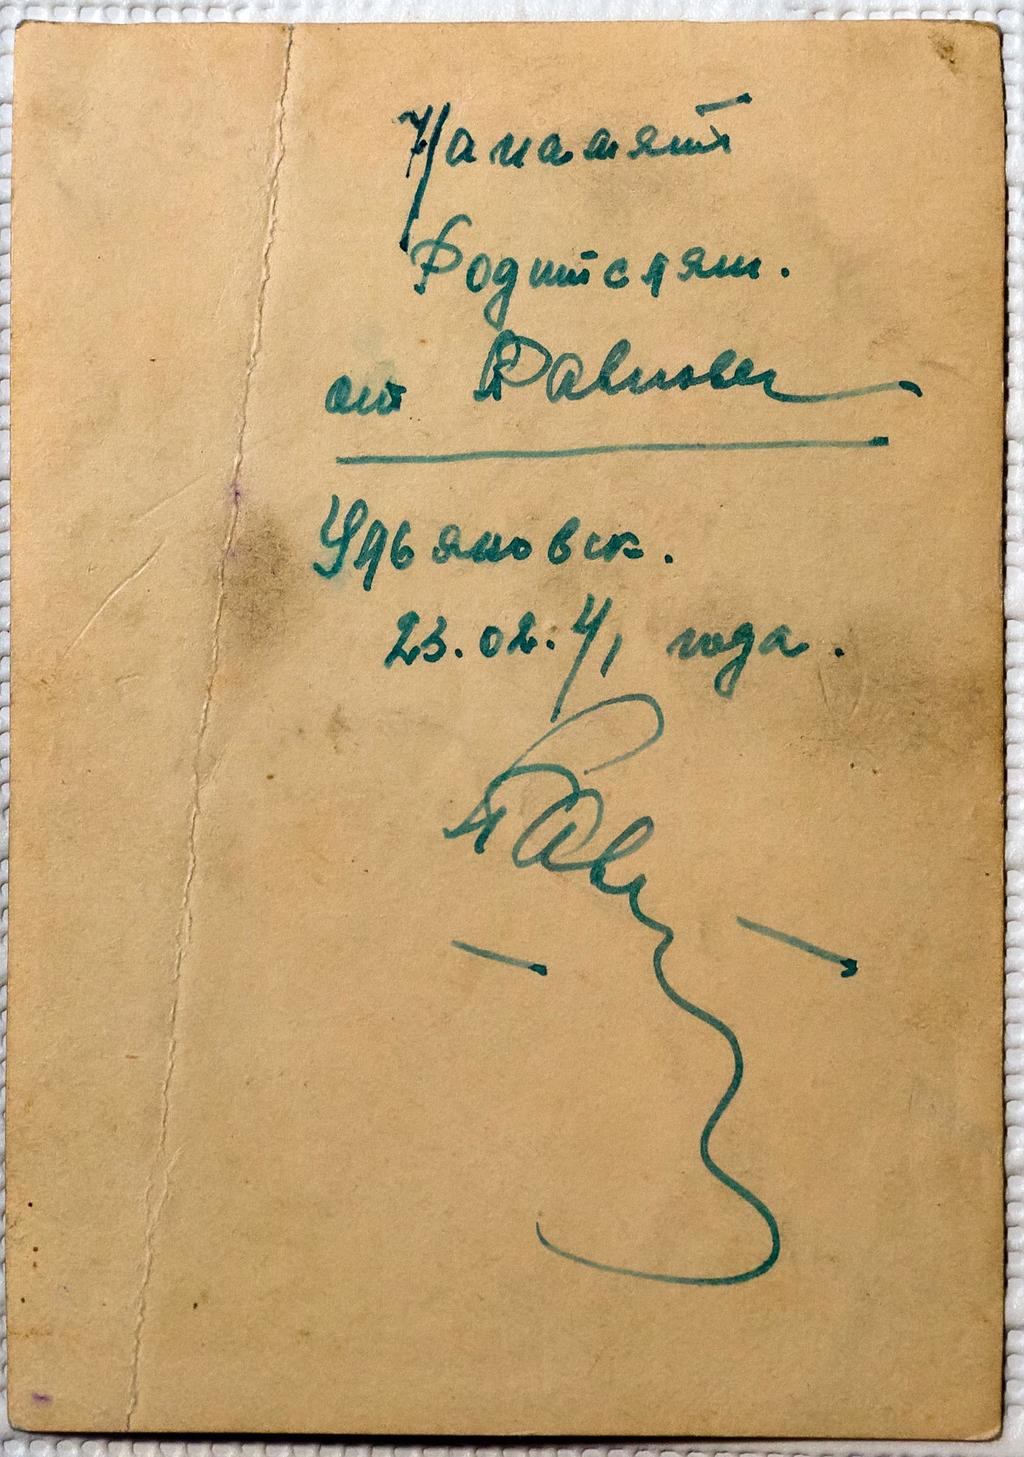 На память
Родителям.
от
Ульяновск.
23.02.41 года.